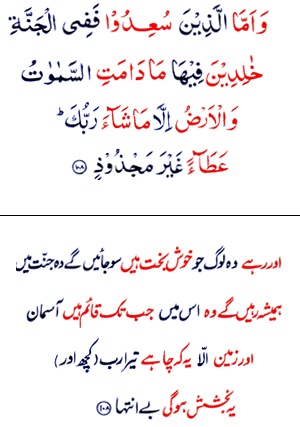 وَاَمَّا الَّذِيْنَ سُعِدُوْا فَفِى الْجَنَّةِ
خٰلِدِيْنَ فِيْهَا مَا دَامَتِ السَّمٰوٰتُ
وَالْاَرْضُ اِلَّا مَا شَآءَ رَبُّكَ ؕ
عَطَآءً غَيْرَ مَجْذُوْذٍ ﴿۱۰۸﴾
اور رہے وہ لوگ جو خوش بخت ہیں سو جائیں گے وہ جنّت میں
ہمیشہ رہیں گے وہ اس میں جب تک قائم ہیں آسمان
اور زمین الّا یہ کہ چاہے تیرا رب (کچھ اور)
یہ بخشش ہوگی بے انتہا ﴿۱۰۸﴾